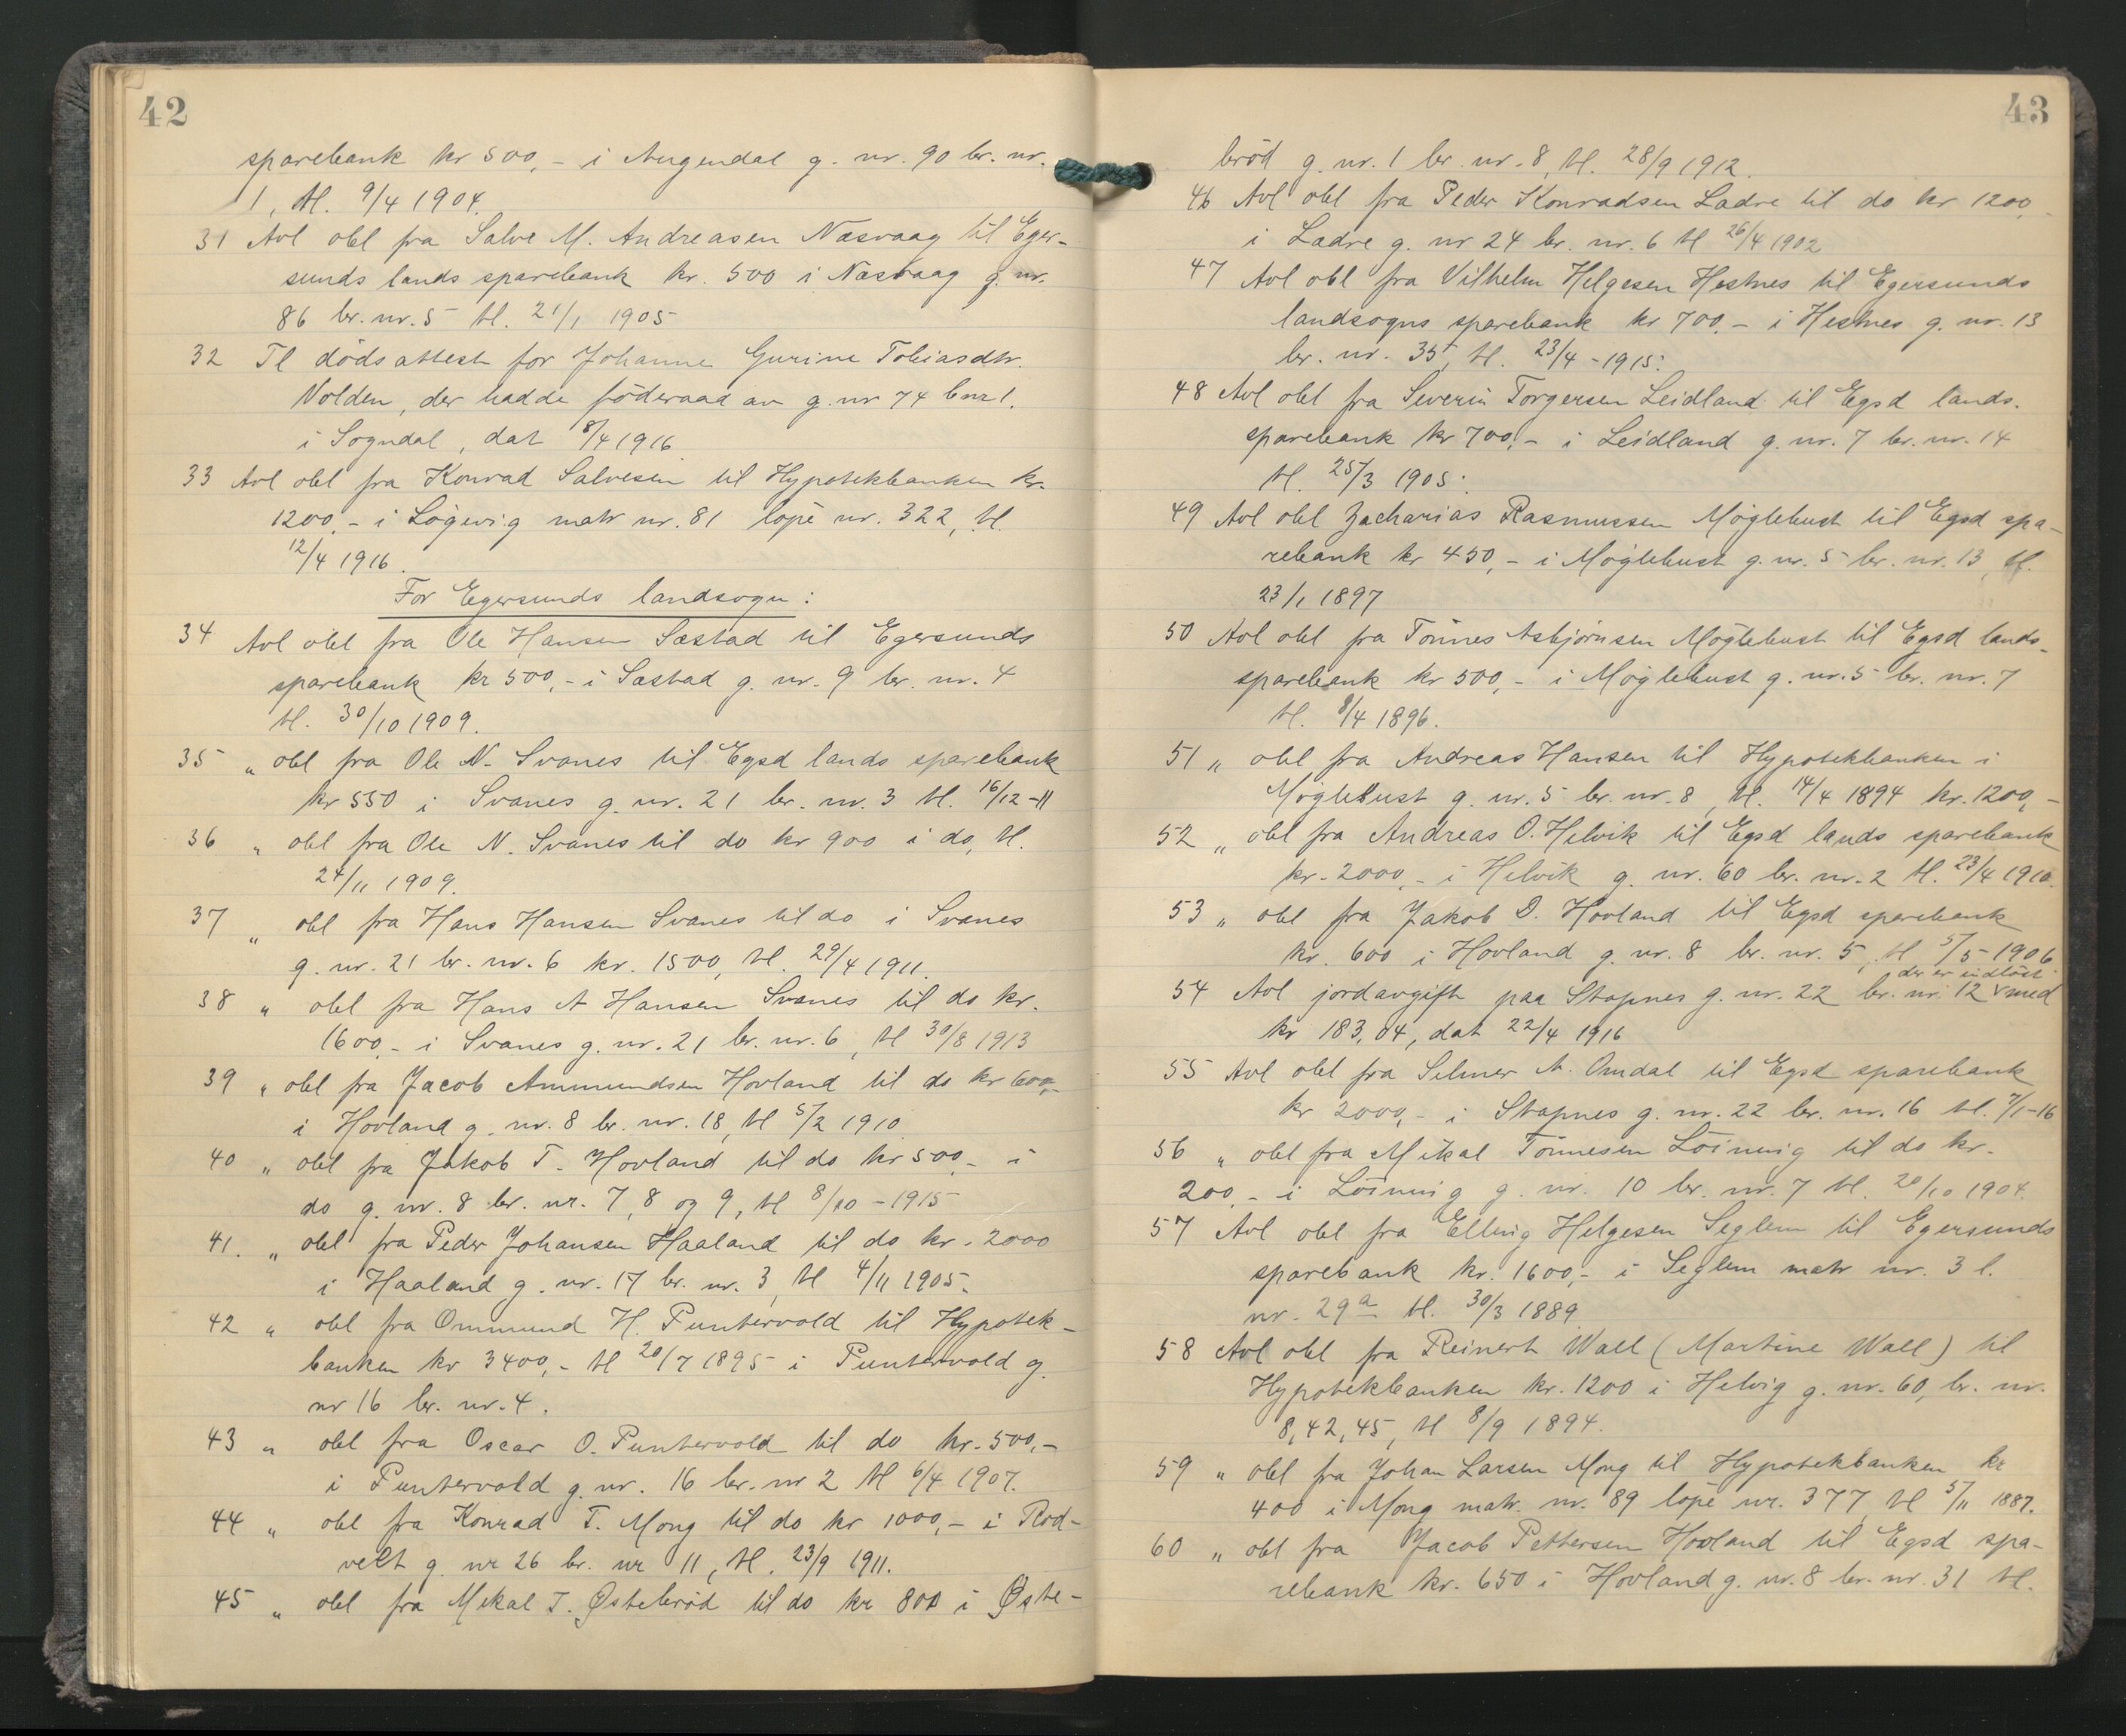 42
sparebank kr 500,- i Angendal g. nr. 90 br. nr.
1, tl. 9/4 1904.
31 Avl obl fra Salve M. Andreasen Næsvaag til Eger-
sunds lands sparebank kr. 500 i Næsvaag g. nr.
86 br. nr. 5 tl. 21/1 1905
32 Tl dödsattest for Johanne Gurine Tobiasdtr.
Volden, der hadde föderaad av g. nr 74 bnr 1.
i Sogndal, dat 8/4 1916.
33 Avl obl fra Konrad Salvesen til Hypotekbanken kr.
1200,- i Lögevig matr nr. 81 löpe nr. 322, tl.
12/4 1916.
For Egersunds landsogn:
34 Avl obl fra Ole Hansen Sæstad til Egersunds
sparebank kr 500,- i Sæstad g. nr. 9 br. nr. 4
tl. 30/10 1909.
35 „ obl fra Ole N. Svanes til Egsd lands sparebank
kr 550 i Svanes g. nr. 21 br. nr. 3 tl. 16/12-11
36 „ obl fra Ole N. Svanes til do kr 900 i do, tl.
24/11 1909.
37 „ obl fra Hans Hansen Svanes til do i Svanes
g. nr. 21 br. nr. 6 kr. 1500, tl. 29/4 1911.
38 „ obl fra Hans A Hansen Svanes til do kr.
1600,- i Svanes g. nr. 21 br. nr. 6, tl 30/8 1913
39 „ obl fra Jacob Ammundsen Hovland til do kr 600,-
i Hovland g. nr. 8 br. nr. 18, tl 5/2 1910
40 „ obl fra Jakob T. Hovland til do kr 500,- i
do g. nr. 8 br. nr. 7, 8 og 9, tl 8/10 - 1915
41. „ obl fra Peder Johansen Haaland til do kr. 2000
i Haaland g. nr. 17 br. nr. 3, tl 4/11 1905.
42 „ obl fra Ommund H. Puntervold til Hypotek-
banken kr 3400,- tl 20/7 1895 i Puntervold g.
nr 16 br. nr. 4.
43 „ obl fra Oscar O. Puntervold til do kr. 500,-
i Puntervold g. nr. 16 br. nr 2 tl 6/4 1907.
44 „ obl fra Konrad T. Mong til do kr 1000,- i Rod-
velt g. nr 26 br. nr 11, tl. 23/9 1911.
45 „ obl fra Mikal T. Østebröd til do kr 800 i Øste-
43
bröd g. nr. 1 br. nr. 8, tl. 28/9 1912.
46 Avl obl fra Peder Konradsen Ladre til do kr 1200,-
i Ladre g. nr 24 br. nr. 6 tl 26/4 1902
47 Avl obl fra Vilhelm Helgesen Hestnes til Egersunds
landsogns sparebank kr 700,- i Hestnes g. nr. 13
br. nr. 35, tl. 23/4 - 1915.
48 Avl obl fra Severin Torgersen Leidland til Egsd lands.
sparebank kr 700,- i Leidland g. nr. 7 br. nr. 14
tl. 25/3 1905.
49 Avl obl Zacharias Rasmussen Möglebust til Egsd spa-
rebank kr 450,- i Möglebust g. nr. 5 br. nr. 13, tl.
23/1 1897
50 Avl obl fra Tönnes Asbjörnsen Möglebust til Egsd lands-
sparebank kr 500,- i Möglebust g. nr. 5 br. nr. 7
tl. 8/4 1896.
51 „ obl fra Andreas Hansen til Hypotekbanken i
Möglebust g. nr. 5 br. nr. 8, tl. 14/4 1894 kr. 1200,-
52 „ obl fra Andreas O. Helvik til Egsd lands sparebank
kr. 2000,- i Helvik g. nr. 60 br. nr. 2 tl. 23/4 1910.
53 „ obl fra Jakob D. Hovland til Egsd sparebank
kr. 600 i Hovland g. nr. 8 br. nr. 5, tl 5/5 - 1906
der er indlöst
54 Avl jordavgift paa Stapnes g. nr. 22 br. nr. 12 v med
kr 183,04, dat 22/4 1916
55 Avl obl fra Selmer A. Omdal til Egsd sparebank
kr 2000,- i Stapnes g. nr. 22 br. nr. 16 tl. 7/1-16
56 „ obl fra Mikal Tönnesen Löining til do kr.
200,- i Löining g. nr. 10 br. nr. 7 tl. 20/10 1904.
57 Avl obl fra Elling Helgesen Seglem til Egersunds
sparebank kr. 1600,- i Seglem matr nr. 3 l.
nr. 29a tl. 30/3 1889
58 Avl obl fra Reinert Wall (Martine Wall) til
Hypotekbanken kr. 1200 i Helvig g. nr. 60, br. nr.
8, 42, 45, tl 8/9 1894.
59 „ obl fra Johan Larsen Mong til Hypotekbanken kr
400 i Mong matr. nr. 89 löpe nr. 377, tl 5/11 1887.
60 „ obl fra Jacob Pettersen Hovland til Egsd spa-
rebank kr. 650 i Hovland g. nr. 8 br. nr. 31 tl.